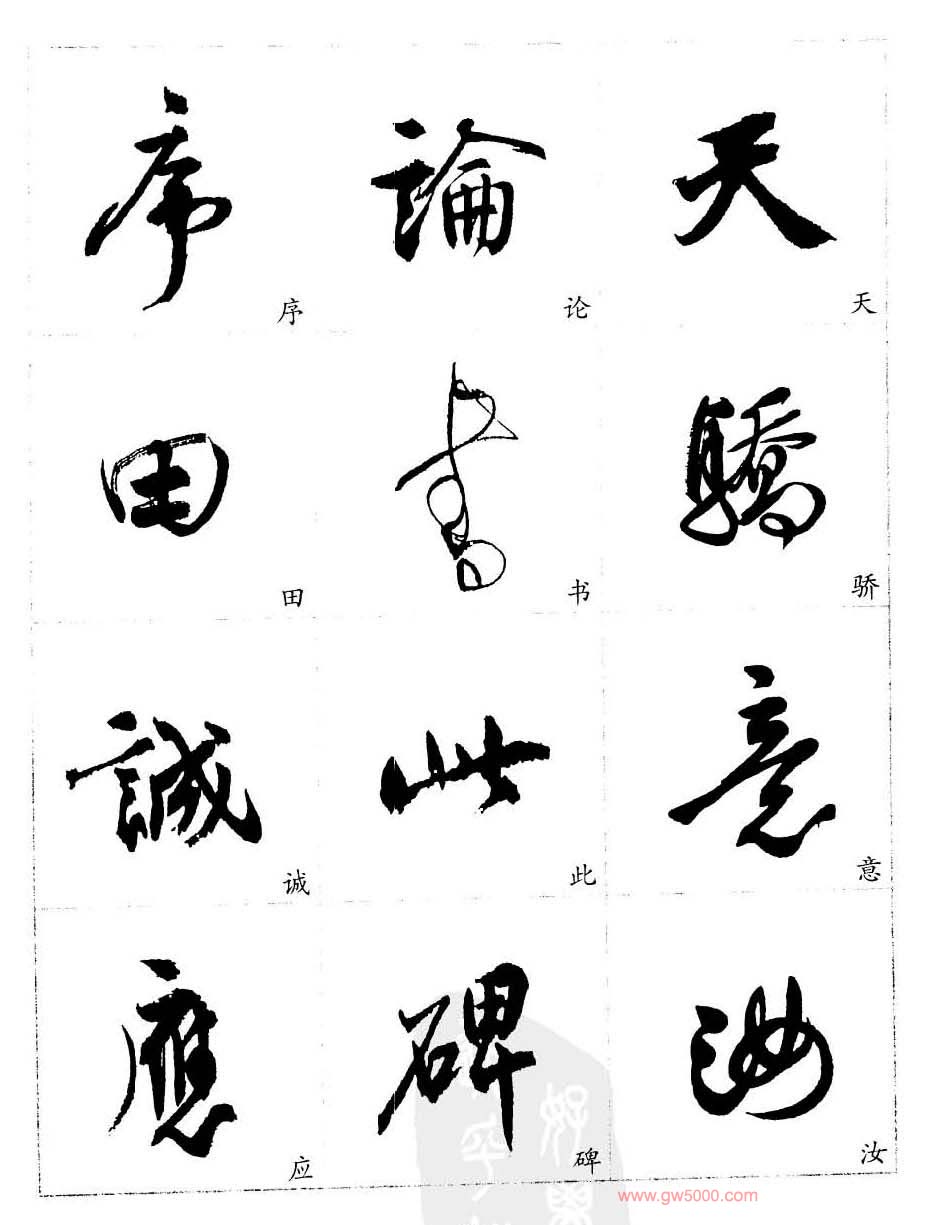 天驕意汝
天骄意汝
論書此碑
论书此碑
序田誠應
序田诚应
www.gw5000.com